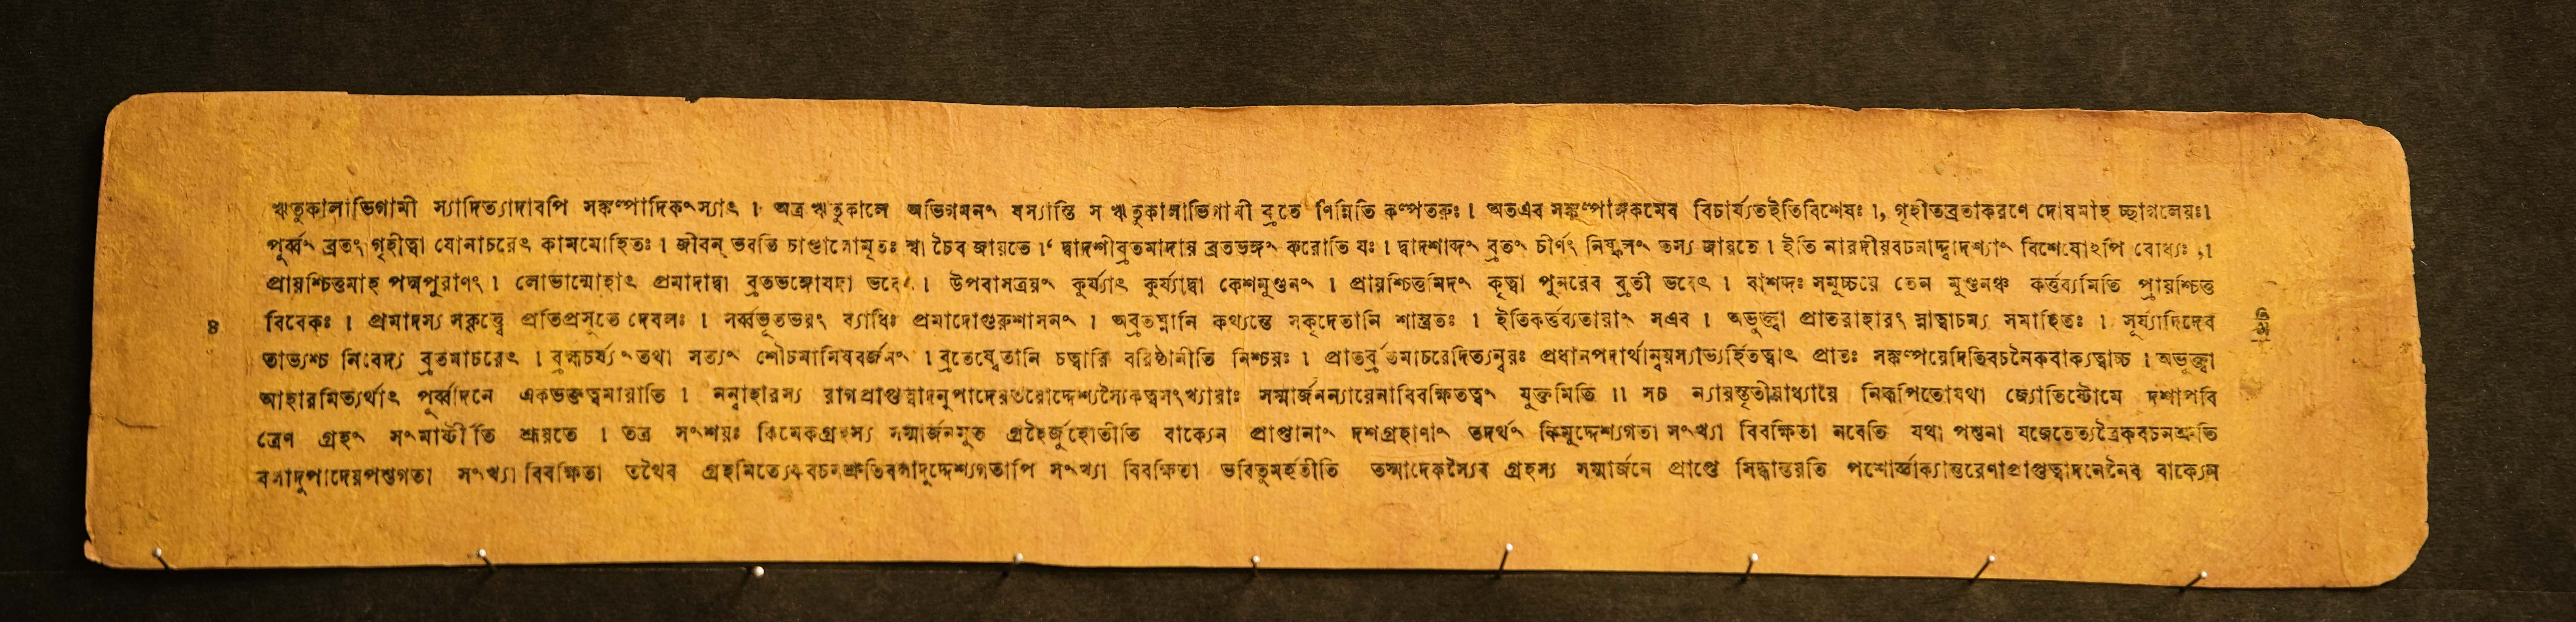 ঋতুকালাভিগামী স্যাদিত্যাদাবপি সঙ্কল্পাদিকং স্যাৎ । অত্র ঋতুকালে অভিগমনং যস্যাস্তি স ঋতুকালাভিগামী ব্রতে ণিন্নিতি কল্পতরুঃ । অতএব সঙ্কল্পাঙ্গকমেব বিচার্য্যতইতিবিশেষঃ ।, গৃহীতব্রতাকরণে দোষমাহ চ্ছাগলেয়ঃ।
পূর্ব্বং ব্রতং গৃহীত্বা যোনাচরেৎ কামমোহিতঃ । জীবন্ ভবতি চাণ্ডালোমৃতঃ শ্বা চৈব জায়তে । দ্বাদশীব্রতমাদায় ব্রতভঙ্গং করোতি যঃ । দ্বাদশাব্দং ব্রতং চীর্ণং নিষ্ফলং তস্য জায়তে । ইতি নারদীয়বচনাদ্দ্বাদশ্যাং বিশেষোঽপি বোধ্যঃ ,।
প্রায়শ্চিত্তমাহ পদ্মপুরাণং । লোভান্মোহাৎ প্রমাদাদ্বা ব্রতভঙ্গোযদা ভবেৎ । উপবাসত্রয়ং কুর্য্যাৎ কুর্য্যাদ্বা কেশমুণ্ডনং । প্রায়শ্চিত্তমিদং কৃত্বা পুনরেব ব্রতী ভবেৎ । বাশব্দঃ সমুচ্চয়ে তেন মুণ্ডনঞ্চ কর্ত্তব্যমিতি প্রায়শ্চিত্ত
৪ বিবেকঃ । প্রমাদস্য সকৃত্ত্বে প্রতিপ্রসূতে দেবলঃ । সর্ব্বভূতভয়ং ব্যাধিঃ প্রমাদোগুরুশাসনং । অব্রতঘ্নানি কথ্যন্তে সকৃদেতানি শাস্ত্রতঃ । ইতিকর্ত্তব্যতায়াং সএব । অভুক্ত্বা প্রাতরাহারং স্নাত্বাচম্য সমাহিতঃ । সূর্য্যাদিদেব
তাভ্যশ্চ নিবেদ্য ব্রতমাচরেৎ । ব্রহ্মচর্য্যং তথা সত্যং শৌচমামিষবর্জনং । ব্রতেষ্বেতানি চত্বারি বরিষ্ঠানীতি নিশ্চয়ঃ । প্রাতর্ব্রতমাচরেদিত্যন্বয়ঃ প্রধানপদার্থান্বয়স্যাভ্যর্হিতত্বাৎ প্রাতঃ সঙ্কল্পয়েদিতিবচনৈকবাক্যত্বাচ্চ । অভুক্ত্বা
আহারমিত্যর্থাৎ পূর্ব্বদিনে একভক্তত্বমায়াতি । নন্বাহারস্য রাগপ্রাপ্তত্বাদনুপাদেয়তয়োদ্দেশ্যস্যৈকত্বসংখ্যায়াঃ সম্মার্জনন্যায়েনাবিবক্ষিতত্বং যুক্তমিতি ।। সচ ন্যায়স্তৃতীয়াধ্যায়ে নিরূপিতোযথা জ্যোতিষ্টোমে দশাপবি
ত্রেণ গ্রহং সংমার্ষ্টীতি শ্রূয়তে । তত্র সংশয়ঃ কিমেকগ্রহস্য সম্মার্জনমুত গ্রহৈর্জুহোতীতি বাক্যেন প্রাপ্তানাং দশগ্রহাণাং তদর্থং কিমুদ্দেশ্যগতা সংখ্যা বিবক্ষিতা নবেতি যথা পশুনা যজেতেত্যত্রৈকবচনশ্রুতি
বলাদুপাদেয়পশুগতা সংখ্যা বিবক্ষিতা তথৈব গ্রহমিত্যেকবচনশ্রুতিবলাদুদ্দেশ্যগতাপি সংখ্যা বিবক্ষিতা ভবিতুমর্হতীতি তস্মাদেকস্যৈব গ্রহস্য সম্মার্জনে প্রাপ্তে সিদ্ধান্তয়তি পশোর্ব্বাক্যান্তরেণাপ্রাপ্তত্বাদনেনৈব বাক্যেন